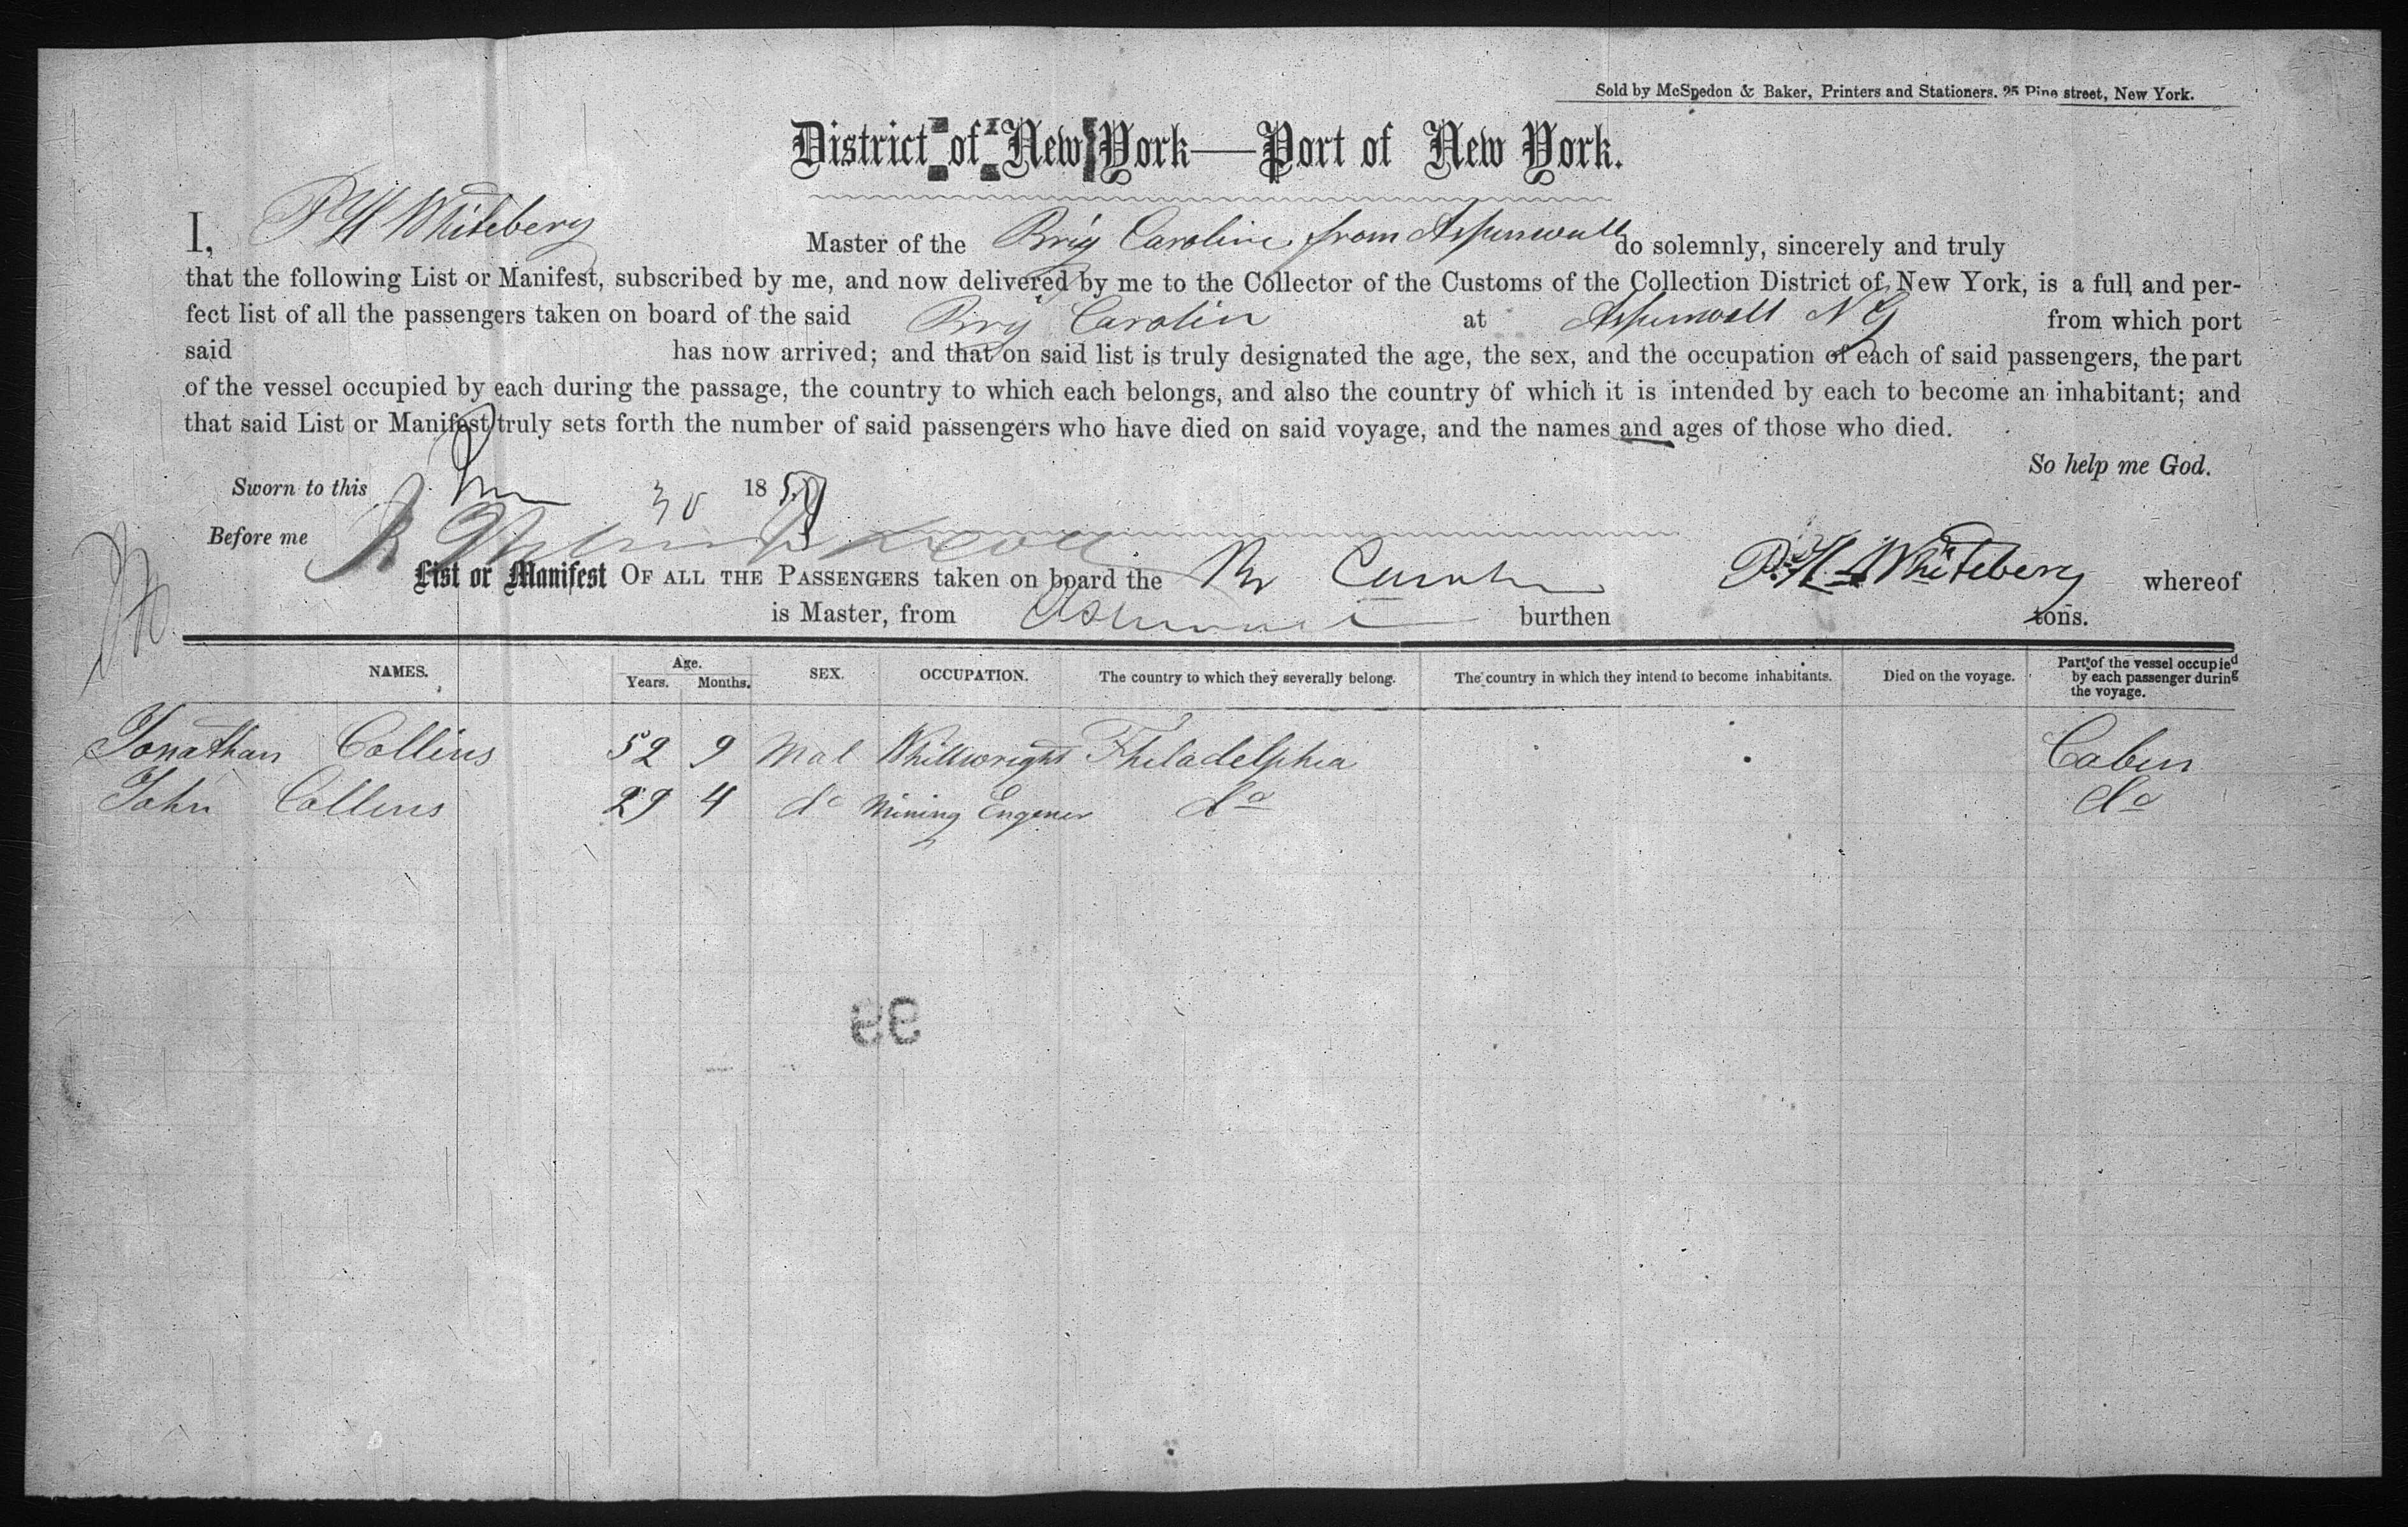 Sold by McSpedon & Baker, Printers and Stationers. 25 Pine street, New York.
District of New York—Port of New York.
I, P H Whiteberry Master of the Brig Caroline from Aspinwall do solemnly, sincerely and truly
that the following List or Manifest, subscribed by me, and now delivered by me to the Collector of the Customs of the Collection District of New York, is a full and per-
fect list of all the passengers taken on board of the said Brig Carolin at Aspinwall N G from which port
said has now arrived; and that on said list is truly designated the age, the sex, and the occupation of each of said passengers, the part
of the vessel occupied by each during the passage, the country to which each belongs, and also the country of which it is intended by each to become an inhabitant; and
that said List or Manifest truly sets forth the number of said passengers who have died on said voyage, and the names and ages of those who died.
So help me God.
Sworn to this 30 18
Before me
List or Manifest OF ALL THE PASSENGERS taken on board the Br P. H. Whiteberry whereof
is Master, from burthen tons.
NAMES. Age. Years. Months. SEX. OCCUPATION. The country to which they severally belong. The country in which they intend to become inhabitants. Died on the voyage. Part of the vessel occupied by each passenger during the voyage.
Jonathan Collins 52 9 Mal Philadelphia Cabin
John Collins 29 4 do Mining Engener do do
99